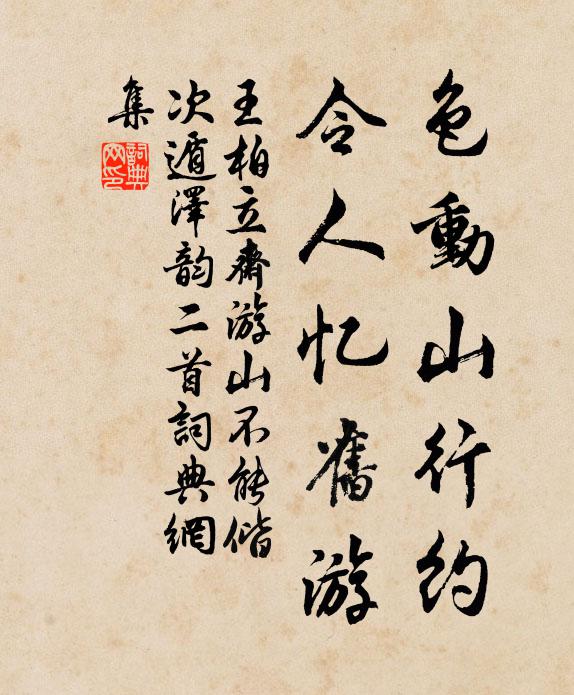 色動山行约
令人忆舊游
王柏立齋游山不能偕
次遁澤韵二首詞典網
集
詞典
网印